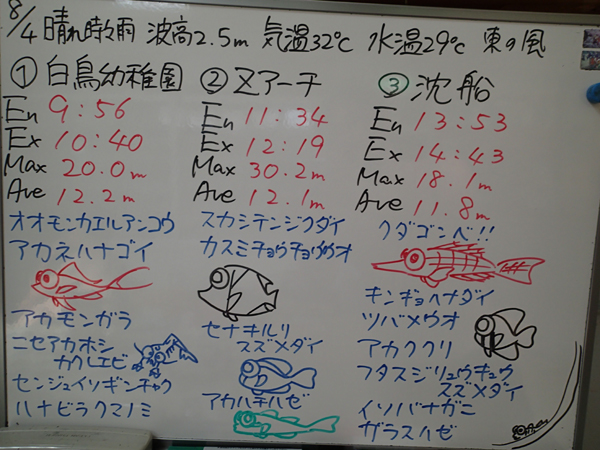 8/4 晴れ時々雨 波高2.5m 気温32℃ 水温29℃ 東の風
① 白鳥幼稚園
En 9:56
Ex 10:40
Max 20.0m
Ave 12.2m
オオモンカエルアンコウ
アカネハナゴイ
アカモンガラ
ニセアカホシ
カクレエビ
センジュイソギンチャク
ハナビラクマノミ
② Zアーチ
En 11:34
Ex 12:19
Max 30.2m
Ave 12.1m
スカシテンジクダイ
カスミチョウチョウウオ
セナキルリ
スズメダイ
アカハチハゼ
③ 沈船
En 13:53
Ex 14:43
Max 18.1m
Ave 11.8m
クダゴンベ!!
キンギョハナダイ
ツバメウオ
アカククリ
フタスジリュウキュウ
スズメダイ
イソバナガニ
ガラスハゼ